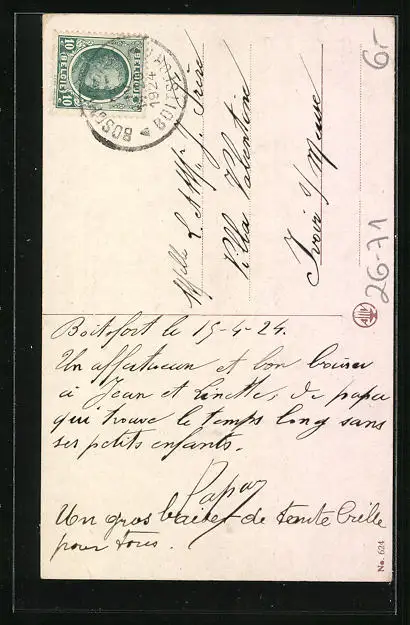 10 BELGIQUE 10
1924
BOSCH
Melle L.
Villa Valentine
Ivoir s/ Meuse
6,-
26-71
Boitsfort le 15-4-24.
Un affectueux et bon baiser
à Jean et Linette, de papa
qui trouve le temps long sans
ses petits enfants.
Papa
Un gros baiser de tante
pour tous.
No. 624